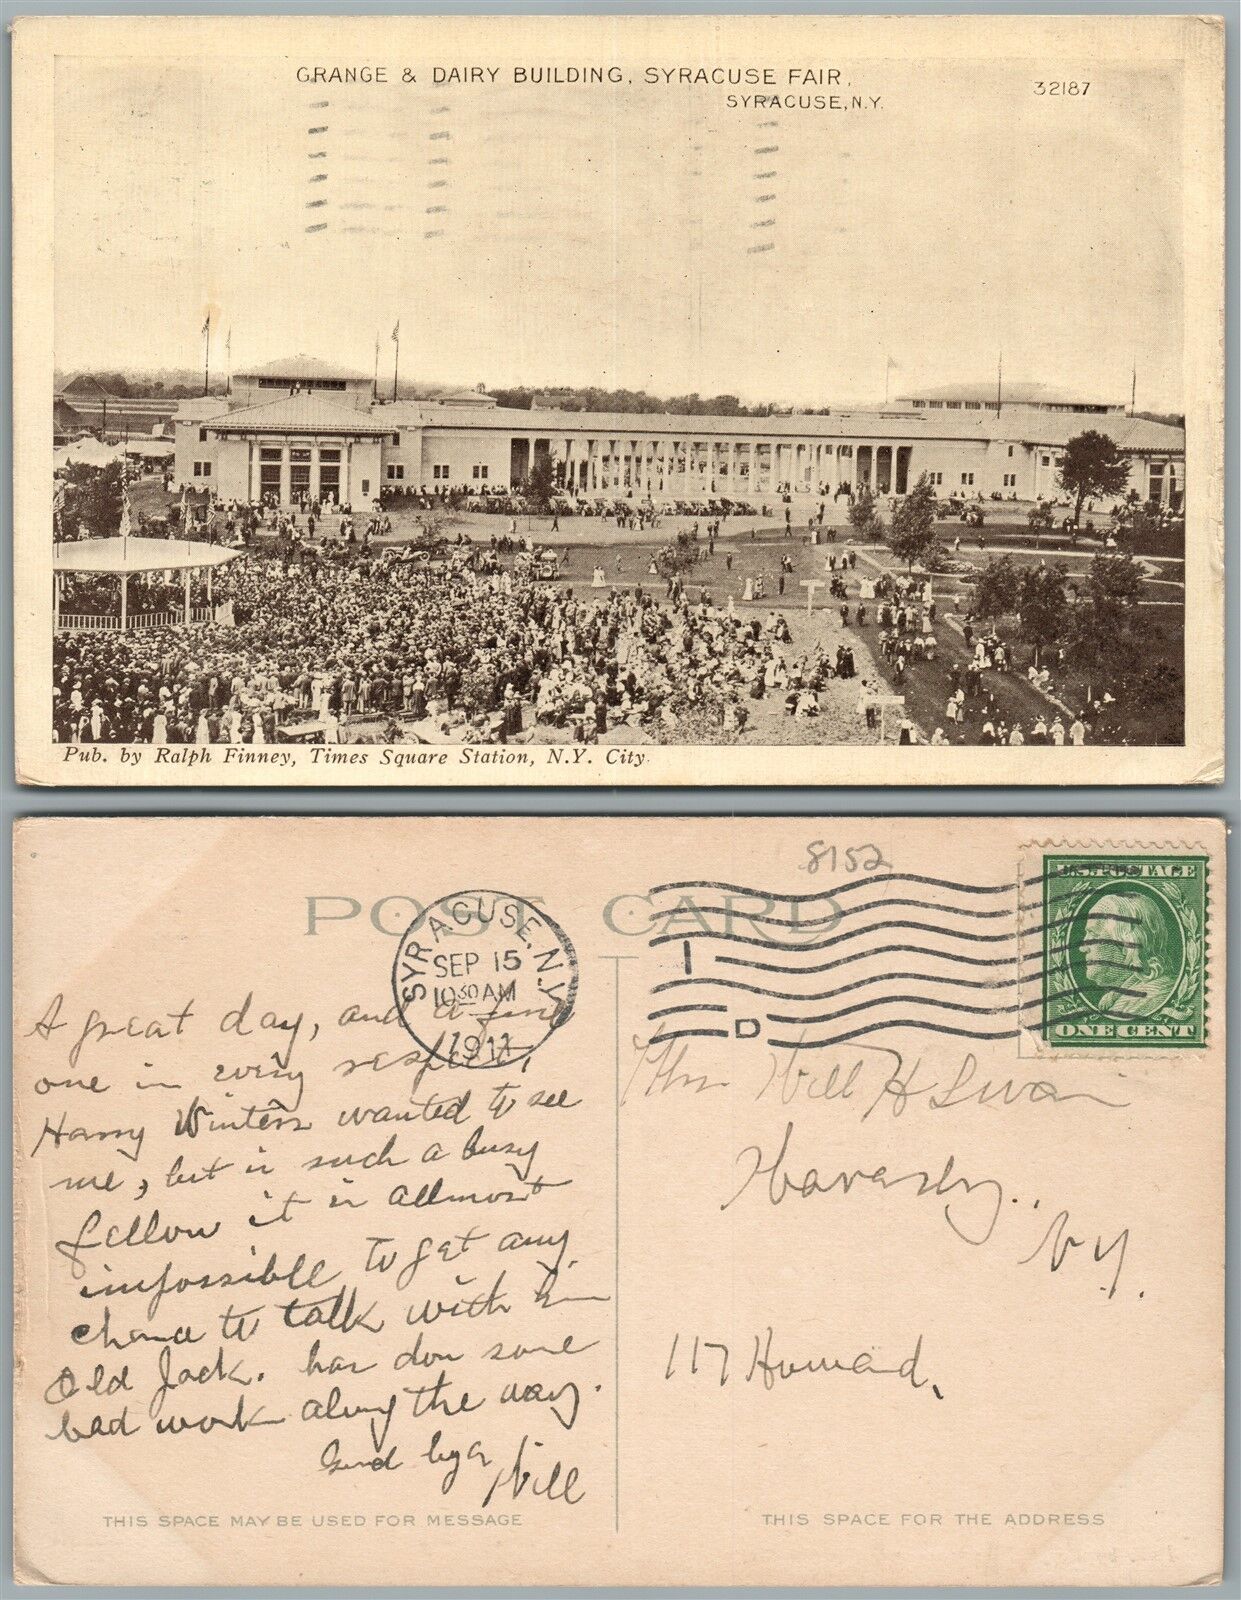 GRANGE & DAIRY BUILDING, SYRACUSE FAIR,
SYRACUSE, N.Y.
32187
Pub. by Ralph Finney, Times Square Station, N.Y. City.
8152
POST CARD
SYRACUSE, N.Y.
SEP 15
10 30 AM
1911
I
D
U.S. POSTAGE
ONE CENT
A great day, and a fine
one in every respect,
Harry Winters wanted to see
me, but is such a busy
fellow it is allmost
impossible to get any
chance to talk with him
Old Jack. has don some
bad work along the way.
Good bye
Will
Mrs Will H Swain
Waverly..
N.Y.
117 Howard,
THIS SPACE MAY BE USED FOR MESSAGE
THIS SPACE FOR THE ADDRESS